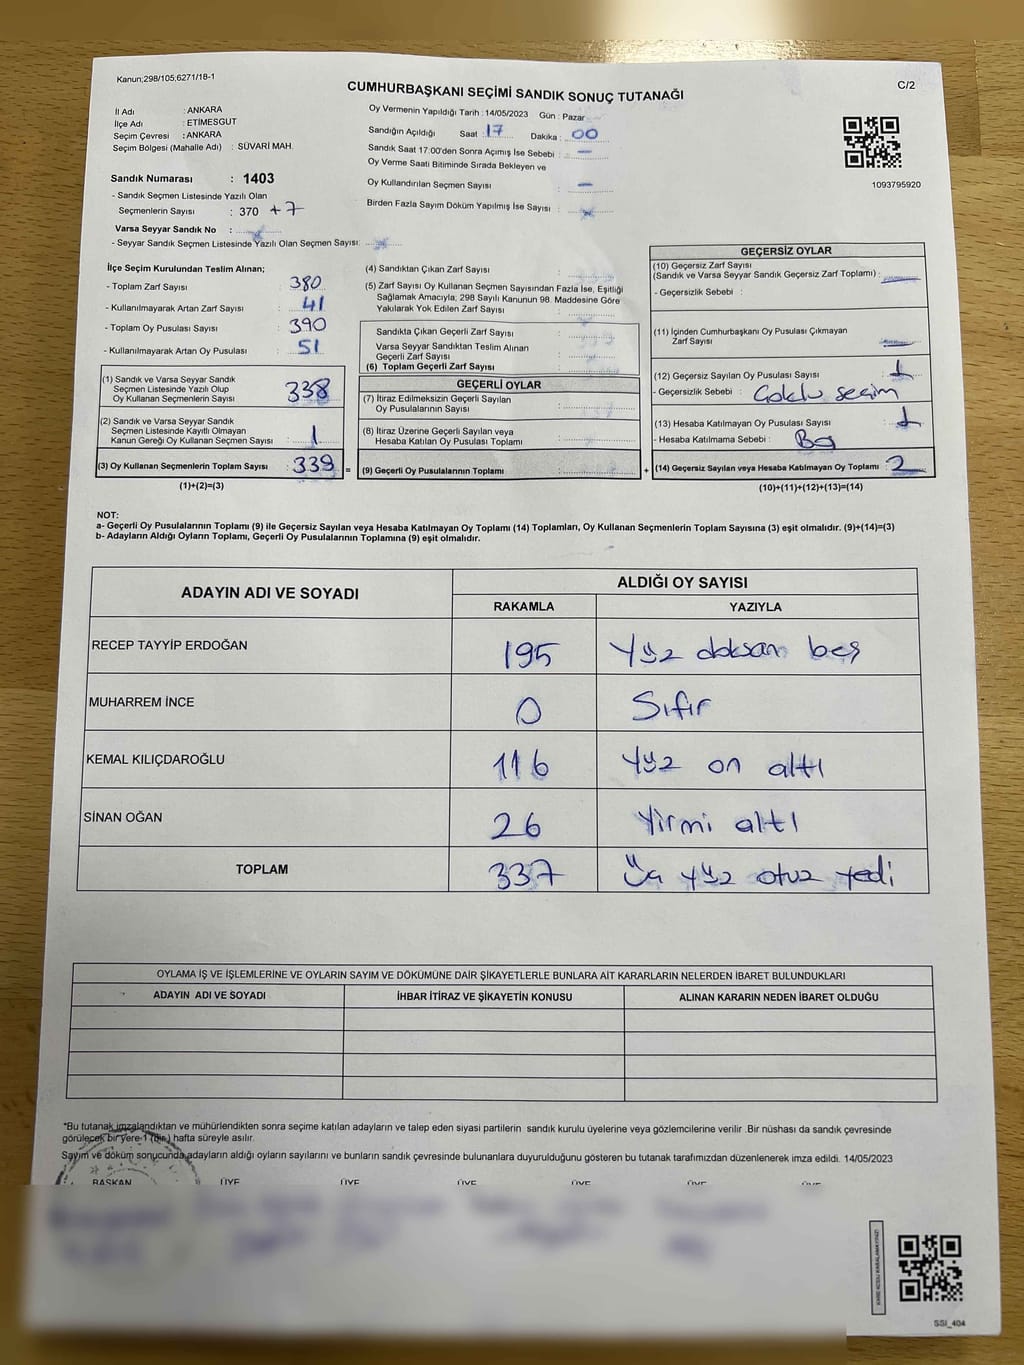 Kanun;298/105;6271/18-1
CUMHURBAŞKANI SEÇİMİ SANDIK SONUÇ TUTANAĞI
C/2
İl Adı : ANKARA
İlçe Adı : ETİMESGUT
Seçim Çevresi : ANKARA
Seçim Bölgesi (Mahalle Adı) : SÜVARİ MAH.
Sandık Numarası : 1403
- Sandık Seçmen Listesinde Yazılı Olan
Seçmenlerin Sayısı : 370 +7
Varsa Seyyar Sandık No :
- Seyyar Sandık Seçmen Listesinde Yazılı Olan Seçmen Sayısı:
Oy Vermenin Yapıldığı Tarih : 14/05/2023 Gün : Pazar
Sandığın Açıldığı Saat : 17 Dakika : 00
Sandık Saat 17.00'den Sonra Açımış İse Sebebi : —
Oy Verme Saati Bitiminde Sırada Bekleyen ve
Oy Kullandırılan Seçmen Sayısı : —
Birden Fazla Sayım Döküm Yapılmış İse Sayısı :
1093795920
İlçe Seçim Kurulundan Teslim Alınan;
- Toplam Zarf Sayısı : 380
- Kullanılmayarak Artan Zarf Sayısı : 41
- Toplam Oy Pusulası Sayısı : 390
- Kullanılmayarak Artan Oy Pusulası : 51
(1) Sandık ve Varsa Seyyar Sandık
Seçmen Listesinde Yazılı Olup
Oy Kullanan Seçmenlerin Sayısı : 338
(2) Sandık ve Varsa Seyyar Sandık
Seçmen Listesinde Kayıtlı Olmayan
Kanun Gereği Oy Kullanan Seçmen Sayısı : 1
(3) Oy Kullanan Seçmenlerin Toplam Sayısı : 339 =
(1)+(2)=(3)
(4) Sandıktan Çıkan Zarf Sayısı :
(5) Zarf Sayısı Oy Kullanan Seçmen Sayısından Fazla İse, Eşitliği
Sağlamak Amacıyla; 298 Sayılı Kanunun 98. Maddesine Göre
Yakılarak Yok Edilen Zarf Sayısı :
Sandıkta Çıkan Geçerli Zarf Sayısı :
Varsa Seyyar Sandıktan Teslim Alınan
Geçerli Zarf Sayısı :
(6) Toplam Geçerli Zarf Sayısı :
GEÇERLİ OYLAR
(7) İtiraz Edilmeksizin Geçerli Sayılan
Oy Pusulalarının Sayısı :
(8) İtiraz Üzerine Geçerli Sayılan veya
Hesaba Katılan Oy Pusulası Toplamı :
(9) Geçerli Oy Pusulalarının Toplamı : +
GEÇERSİZ OYLAR
(10) Geçersiz Zarf Sayısı
(Sandık ve Varsa Seyyar Sandık Geçersiz Zarf Toplamı) : —
- Geçersizlik Sebebi :
(11) İçinden Cumhurbaşkanı Oy Pusulası Çıkmayan
Zarf Sayısı : —
(12) Geçersiz Sayılan Oy Pusulası Sayısı : 1
- Geçersizlik Sebebi : Çoklu seçim
(13) Hesaba Katılmayan Oy Pusulası Sayısı : 1
- Hesaba Katılmama Sebebi : Boş
(14) Geçersiz Sayılan veya Hesaba Katılmayan Oy Toplamı : 2
(10)+(11)+(12)+(13)=(14)
NOT:
a- Geçerli Oy Pusulalarının Toplamı (9) ile Geçersiz Sayılan veya Hesaba Katılmayan Oy Toplamı (14) Toplamları, Oy Kullanan Seçmenlerin Toplam Sayısına (3) eşit olmalıdır. (9)+(14)=(3)
b- Adayların Aldığı Oyların Toplamı, Geçerli Oy Pusulalarının Toplamına (9) eşit olmalıdır.
ADAYIN ADI VE SOYADI
ALDIĞI OY SAYISI
RAKAMLA YAZIYLA
RECEP TAYYİP ERDOĞAN 195 Yüz doksan beş
MUHARREM İNCE 0 Sıfır
KEMAL KILIÇDAROĞLU 116 Yüz on altı
SİNAN OĞAN 26 Yirmi altı
TOPLAM 337 Üç yüz otuz yedi
OYLAMA İŞ VE İŞLEMLERİNE VE OYLARIN SAYIM VE DÖKÜMÜNE DAİR ŞİKAYETLERLE BUNLARA AİT KARARLARIN NELERDEN İBARET BULUNDUKLARI
ADAYIN ADI VE SOYADI İHBAR İTİRAZ VE ŞİKAYETİN KONUSU ALINAN KARARIN NEDEN İBARET OLDUĞU
*Bu tutanak imzalandıktan ve mühürlendikten sonra seçime katılan adayların ve talep eden siyasi partilerin sandık kurulu üyelerine veya gözlemcilerine verilir .Bir nüshası da sandık çevresinde
görülecek bir yere 1 (bir) hafta süreyle asılır.
Sayım ve döküm sonucunda adayların aldığı oyların sayılarını ve bunların sandık çevresinde bulunanlara duyurulduğunu gösteren bu tutanak tarafımızdan düzenlenerek imza edildi. 14/05/2023
BAŞKAN ÜYE ÜYE ÜYE ÜYE ÜYE ÜYE
SSI_404